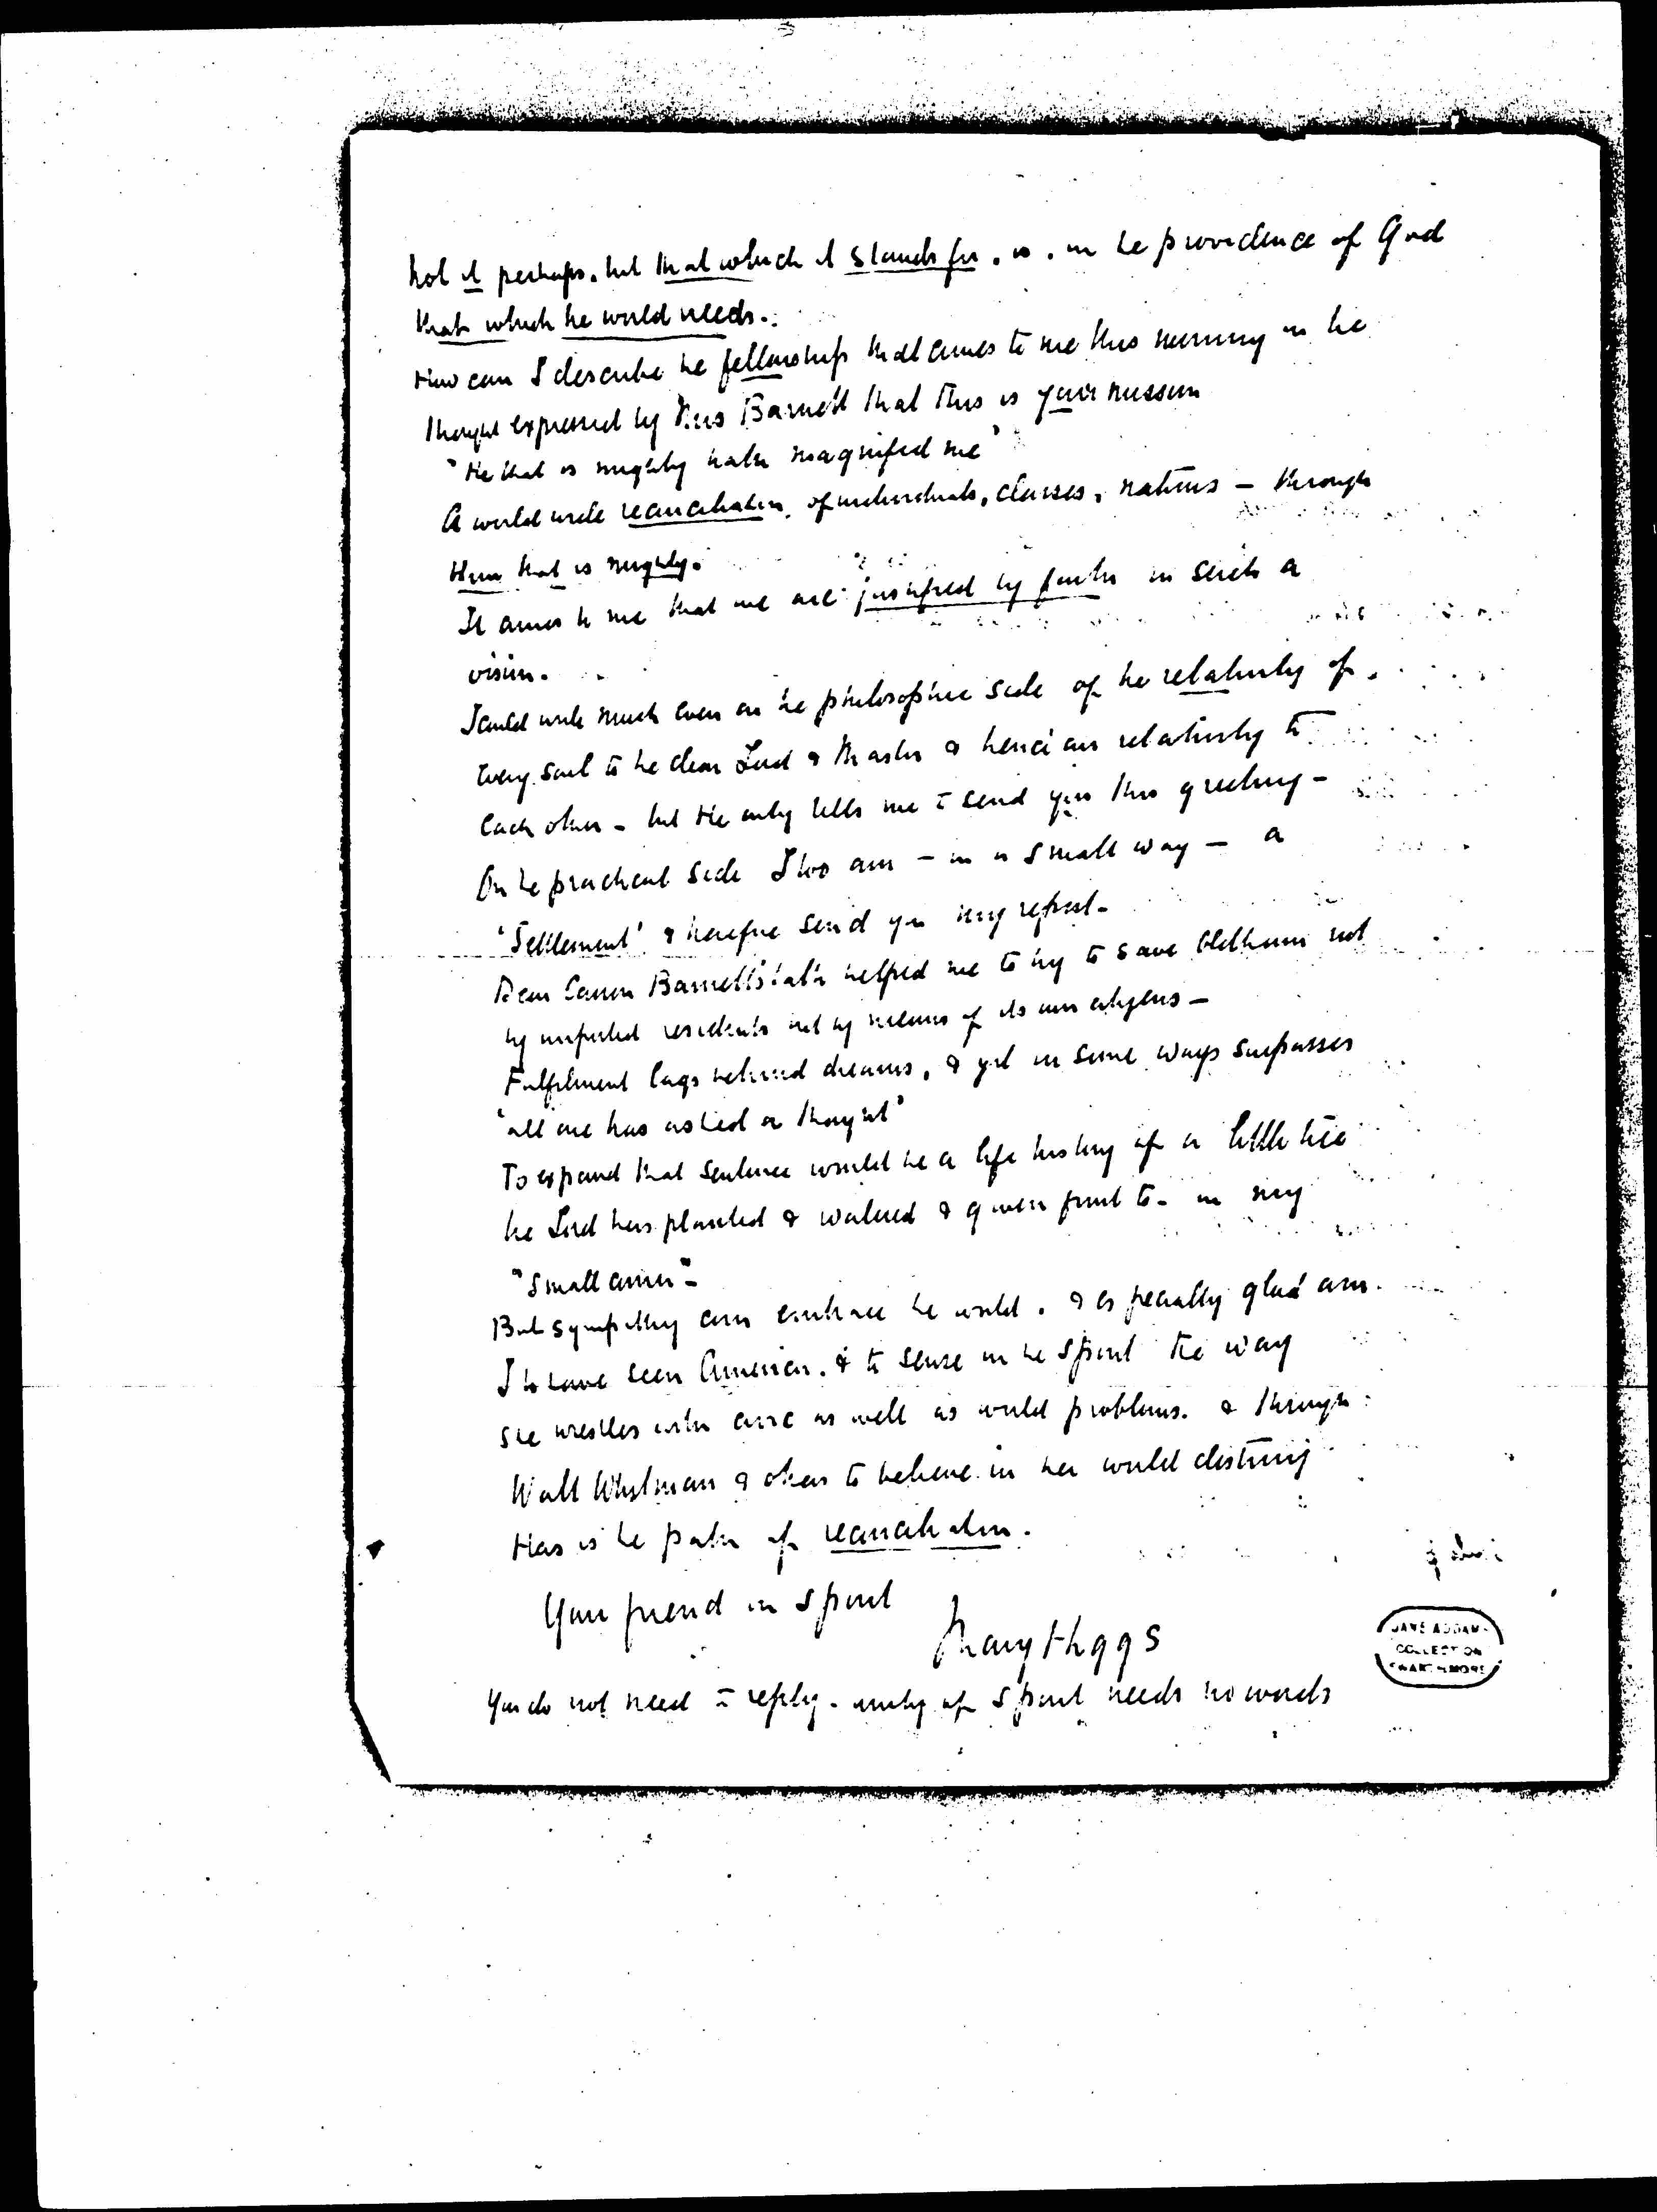 not it perhaps, but that which it stands for, is, in the providence of God
that which the world needs.
How can I describe the fellowship that comes to me this morning in the
thought expressed by Mrs Barnett that this is your mission
"He that is mighty hath magnified me"
A world wide reconciliation, of individuals, classes, nations – through
Him that is mighty.
It comes to me that we are justified by faith in such a
vision.
I could write much even on the philosophic side of the relativity of
every soul to the dear Lord & Master & hence our relativity to
each other – but He only tells me to send you this greeting –
On the practical side I too am – in a small way – a
'Settlement' & therefore send you my report –
Dear Canon Barnett's talk helped me to try to save Oldham not
by imported residents but by means of its own citizens –
Fulfilment lags behind dreams, & yet in some ways surpasses
'all one has asked or thought'
To expand that sentence would be a life history of a little tree
the Lord has planted & watered & given fruit to – in my
"small corner" –
But sympathy can embrace the world, & especially glad am
I to have seen America, & to sense in the spirit the way
she wrestles with civic as well as world problems, & through
Walt Whitman & others to believe in her world destiny
Hers is the path of reconciliation.
Your friend in spirit
Mary Higgs
You do not need to reply – unity of spirit needs no words
JANE ADDAMS
COLLECTION
SWARTHMORE